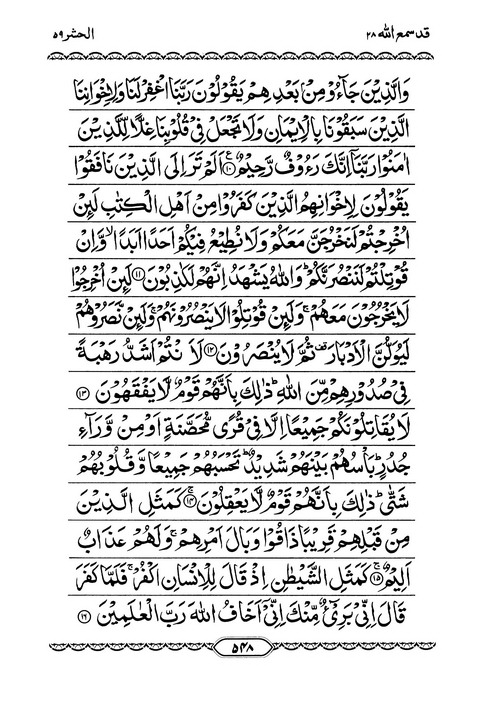 قد سمع الله ٢٨
الحشر ٥٩
وَالَّذِيْنَ جَآءُوْ مِنْۢ بَعْدِهِمْ يَقُوْلُوْنَ رَبَّنَا اغْفِرْ لَنَا وَلِاِخْوَانِنَا
الَّذِيْنَ سَبَقُوْنَا بِالْاِيْمَانِ وَلَا تَجْعَلْ فِيْ قُلُوْبِنَا غِلًّا لِّلَّذِيْنَ
اٰمَنُوْا رَبَّنَاۤ اِنَّكَ رَءُوْفٌ رَّحِيْمٌ ۧ ١٠ اَلَمْ تَرَ اِلَى الَّذِيْنَ نَافَقُوْا
يَقُوْلُوْنَ لِاِخْوَانِهِمُ الَّذِيْنَ كَفَرُوْا مِنْ اَهْلِ الْكِتٰبِ لَئِنْ
اُخْرِجْتُمْ لَنَخْرُجَنَّ مَعَكُمْ وَلَا نُطِيْعُ فِيْكُمْ اَحَدًا اَبَدًا ۙ وَّاِنْ
قُوْتِلْتُمْ لَنَنْصُرَنَّكُمْ ؕ وَاللّٰهُ يَشْهَدُ اِنَّهُمْ لَكٰذِبُوْنَ ١١ لَئِنْ اُخْرِجُوْا
لَا يَخْرُجُوْنَ مَعَهُمْ ۚ وَلَئِنْ قُوْتِلُوْا لَا يَنْصُرُوْنَهُمْ ۚ وَلَئِنْ نَّصَرُوْهُمْ
لَيُوَلُّنَّ الْاَدْبَارَ ۫ ثُمَّ لَا يُنْصَرُوْنَ ١٢ لَاَنْتُمْ اَشَدُّ رَهْبَةً
فِيْ صُدُوْرِهِمْ مِّنَ اللّٰهِ ؕ ذٰلِكَ بِاَنَّهُمْ قَوْمٌ لَّا يَفْقَهُوْنَ ١٣
لَا يُقَاتِلُوْنَكُمْ جَمِيْعًا اِلَّا فِيْ قُرًى مُّحَصَّنَةٍ اَوْ مِنْ وَّرَآءِ
جُدُرٍ ؕ بَاْسُهُمْ بَيْنَهُمْ شَدِيْدٌ ؕ تَحْسَبُهُمْ جَمِيْعًا وَّقُلُوْبُهُمْ
شَتّٰى ؕ ذٰلِكَ بِاَنَّهُمْ قَوْمٌ لَّا يَعْقِلُوْنَ ۚ ١٤ كَمَثَلِ الَّذِيْنَ
مِنْ قَبْلِهِمْ قَرِيْبًا ذَاقُوْا وَبَالَ اَمْرِهِمْ ۚ وَلَهُمْ عَذَابٌ
اَلِيْمٌ ۚ ١٥ كَمَثَلِ الشَّيْطٰنِ اِذْ قَالَ لِلْاِنْسَانِ اكْفُرْ ۚ فَلَمَّا كَفَرَ
قَالَ اِنِّيْ بَرِيْٓءٌ مِّنْكَ اِنِّيْۤ اَخَافُ اللّٰهَ رَبَّ الْعٰلَمِيْنَ ١٦
٥٤٨